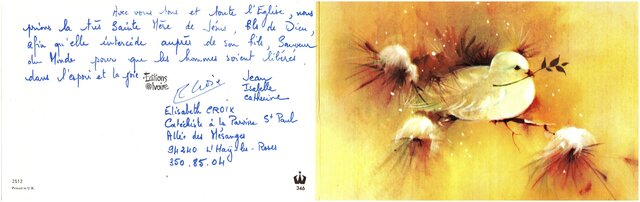 Avec vous tous et toute l'Église, nous
prions la très Sainte Mère de Jésus, Fils de Dieu,
afin qu'elle intercède auprès de son fils, Sauveur
du Monde pour que les hommes soient libérés
dans l'espoir et la joie.
Editions
@Ivoire
Croix
Jean
Isabelle
Catherine
Elisabeth CROIX
Catéchiste à la Paroisse St Paul
Allée des Mésanges
94240 L'Haÿ-les-Roses
350.85.04
2512
Printed in U.K.
346